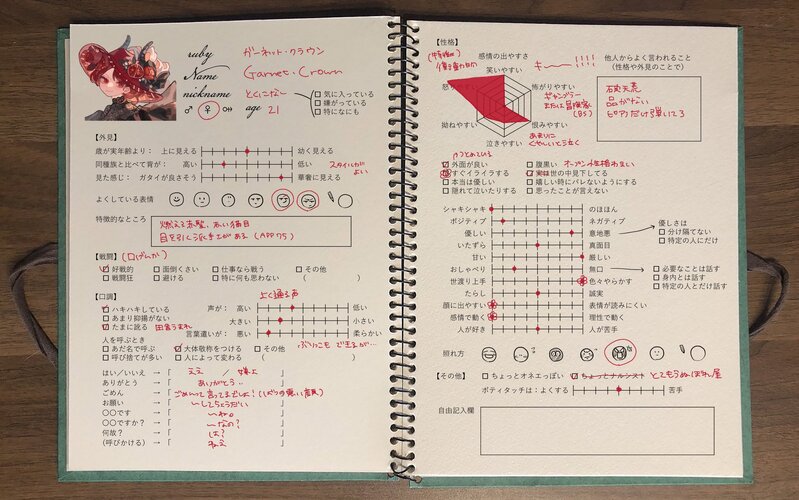 ruby ガーネット・クラウン
Name Garnet・Crown
nickname とくになし
□気に入っている
□嫌がっている
□特になにも
♂ ♀
age 21
【外見】
歳が実年齢より： 上に見える 幼く見える
同種族と比べて背が： 高い 低い
スタイルがよい
見た感じ： ガタイが良さそう 華奢に見える
よくしている表情
特徴的なところ
燃える赤髪、赤い猫目
目を引く派手さがある (APP75)
【戦闘】(口げんか)
☑好戦的 □面倒くさい □仕事なら戦う □その他
□戦闘狂 □避ける □特に何も思わない ( )
【口調】
よく通る声
☑ハキハキしている 声が： 高い 低い
□あまり抑揚がない 大きい 小さい
☑たまに訛る 田舎うまれ 言葉遣いが： 悪い 柔らかい
人を呼ぶとき
ぶりっこもできるが…
□あだ名で呼ぶ ☑大体敬称をつける □その他
□呼び捨てが多い □人によって変える ( )
はい／いいえ →「 ええ / 嫌よ 」
ありがとう →「 ありがとう… 」
ごめん →「ごめんって言ってるでしょ！ 」
お願い →「 〜してちょうだい 」
○○です →「 〜ね。 」
○○ですか？ →「 〜なの？ 」
何故？ →「 は？ 」
(呼びかける) →「 ねえ 」
【性格】
感情の出やすさ
キ〜!!!!
笑いやすい
怒りやすい
怖がりやすい
ギャングラー
または冒険家
(85)
拗ねやすい
恨みやすい
泣きやすい
他人からよく言われること
(性格や外見のことで)
破天荒
品がない
ピアノだけ弾いてろ
☑外面が良い □腹黒い
すぐイライラする ☑実は世の中見下してる
□本当は優しい □嬉しい時にバレないようにする
□隠れて泣いたりする □思ったことが言えない
シャキシャキ のほほん
ポジティブ ネガティブ
優しい 意地悪
優しさは
□分け隔てない
□特定の人にだけ
いたずら 真面目
甘い 厳しい
おしゃべり 無口
□必要なことは話す
□身内とは話す
□特定の人とだけ話す
世渡り上手 色々やらかす
たらし 誠実
顔に出やすい 表情が読みにくい
感情で動く 理性で動く
人が好き 人が苦手
照れ方
【その他】 □ちょっとオネエっぽい □ちょっとナルシスト とてもうぬぼれ屋
ボディタッチは：よくする 苦手
自由記入欄